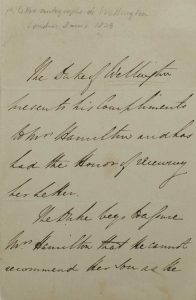 autographe de Wellington
Londres 3 mars 1829
The Duke of Wellington
presents his compliments
to Mrs Hamilton and has
had the Honor of receiving
her letter.
The Duke begs to assure
Mrs Hamilton that he cannot
recommend Her Son as He